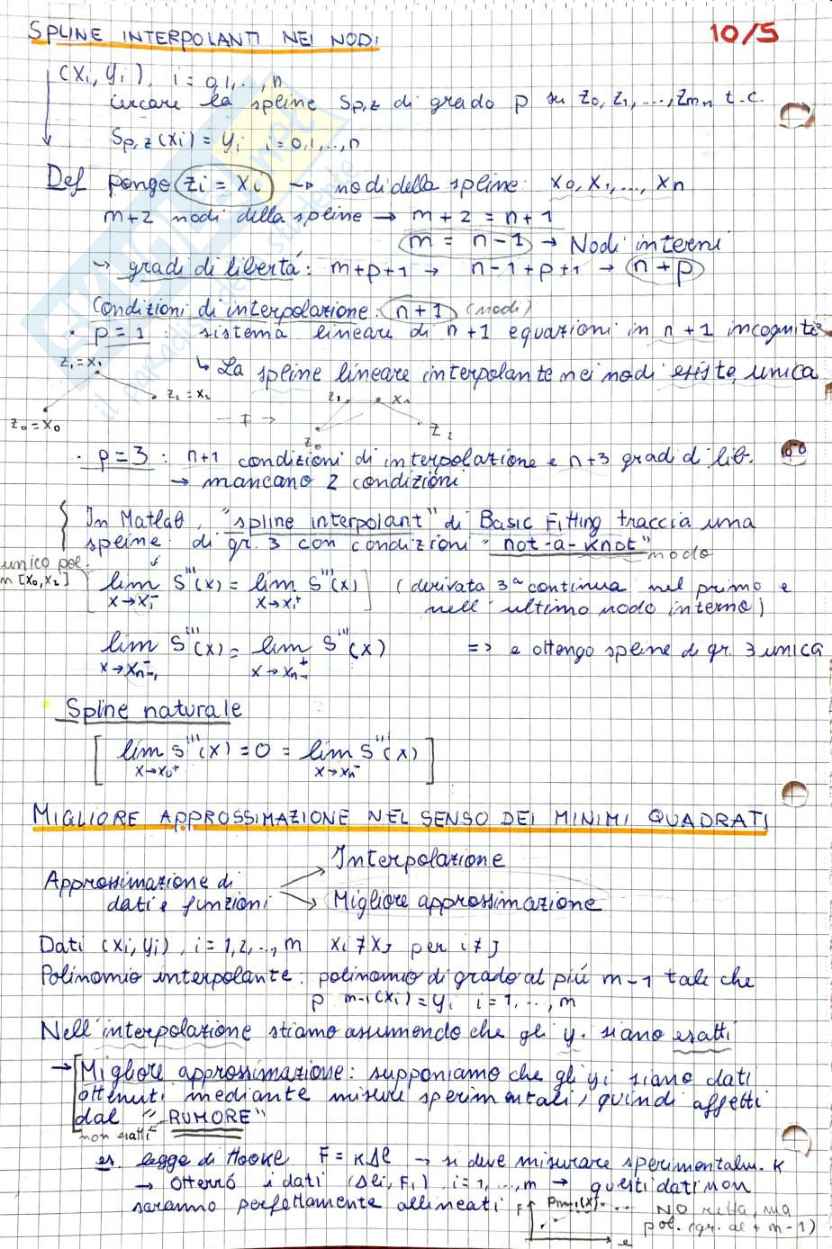 SPLINE INTERPOLANTI NEI NODI
10/5
(xi, yi), i = 0,1,..,n
cercare la spline Sp,z di grado p su z0, z1, ..., zm+1 t.c.
Sp,z (xi) = yi i=0,1,..,n
Def pongo zi = xi → nodi della spline: x0, x1, ..., xn
m+2 nodi della spline → m+2 = n+1
m = n-1 → Nodi interni
→ gradi di libertà: m+p+1 → n-1+p+1 → n+p
Condizioni di interpolazione: n+1 (nodi)
• p=1 : sistema lineare di n+1 equazioni in n+1 incognite
↳ La spline lineare interpolante nei nodi esiste, unica
z1=x1
z2=x2
z0=x0
z1 x1
z0
z2
• p=3 : n+1 condizioni di interpolazione e n+3 gradi d lib.
→ mancano 2 condizioni
In Matlab, "spline interpolant" di Basic Fitting traccia una
spline di gr. 3 con condizioni "not-a-knot"
nodo
unico pol.
in [x0,x2]
lim x→x1⁻ S'''(x) = lim x→x1⁺ S'''(x) (derivata 3ª continua nel primo e
nell'ultimo nodo interno)
lim x→xn-1⁻ S'''(x) = lim x→xn-1⁺ S'''(x) => e ottengo spline d gr. 3 unica
Spline naturale
[ lim x→x0⁺ S'''(x) = 0 = lim x→xn⁻ S'''(x) ]
MIGLIORE APPROSSIMAZIONE NEL SENSO DEI MINIMI QUADRATI
Interpolazione
Approssimazione di
dati e funzioni
Migliore approssimazione
Dati (xi, yi), i = 1,2,..,m xi ≠ xj per i ≠ j
Polinomio interpolante: polinomio di grado al più m-1 tale che
p m-1(xi) = yi i=1,..,m
Nell'interpolazione stiamo assumendo che gli yi siano esatti
→ Migliore approssimazione: supponiamo che gli yi siano dati
ottenuti mediante misure sperimentali, quindi affetti
dal "RUMORE"
non esatti
es. legge di Hooke F = KΔl → si deve misurare sperimentalm. K
→ Otterrò i dati (Δli, Fi) i=1,...,m → questi dati non
saranno perfettamente allineati
F
Pm-1(x)
NO retta, ma
pol. (gr. al + m-1)
e